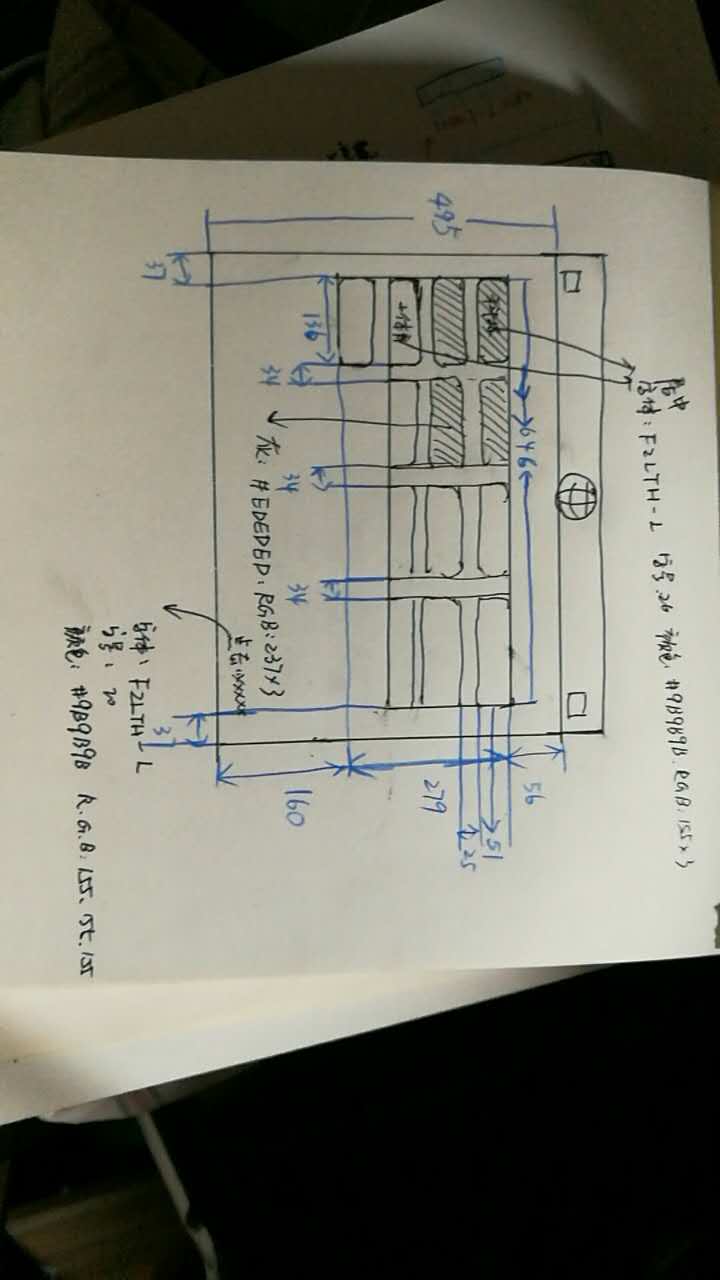 居中
字体: FZLTH-L 字号.26 颜色: #9B9B9B. RGB: 155×3
646
56
51
25
495
279
+体育
136
34
34
34
160
灰: #EDEDED. RGB: 237×3
点击xxxxx
37
37
字体: FZLTH-L
字号: 20
颜色: #9B9B9B R.G.B: 155、155.155